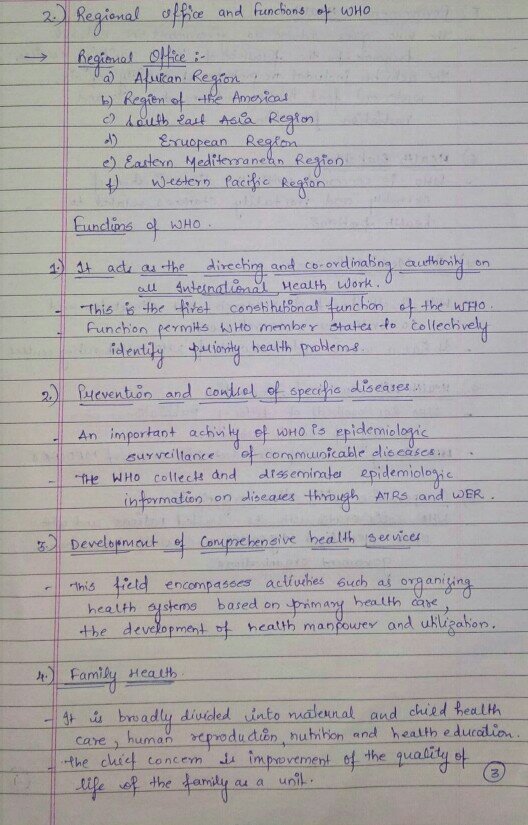 2.) Regional office and functions of WHO
→ Regional Office :-
a) African Region
b) Region of the Americas
c) South East Asia Region
d) Eruopean Region
e) Eastern Mediterranean Region
f) Western Pacific Region
Functions of WHO.
1.) It acts as the directing and co-ordinating authority on
all International Health Work.
- This is the first constitutional function of the WHO.
- Function permits WHO member states to collectively
identify priority health problems.
2.) Prevention and control of specific diseases.
- An important activity of WHO is epidemiologic
surveillance of communicable diseases.
- THE WHO collects and disseminates epidemiologic
information on diseases through ATRS and WER.
3.) Development of Comprehensive health services
- This field encompasses activities such as organizing
health systems based on primary health care,
the development of health manpower and utilization.
4.) Family Health.
- It is broadly divided into maternal and child health
care, human reproduction, nutrition and health education.
- The chief concern is improvement of the quality of
life of the family as a unit.
3